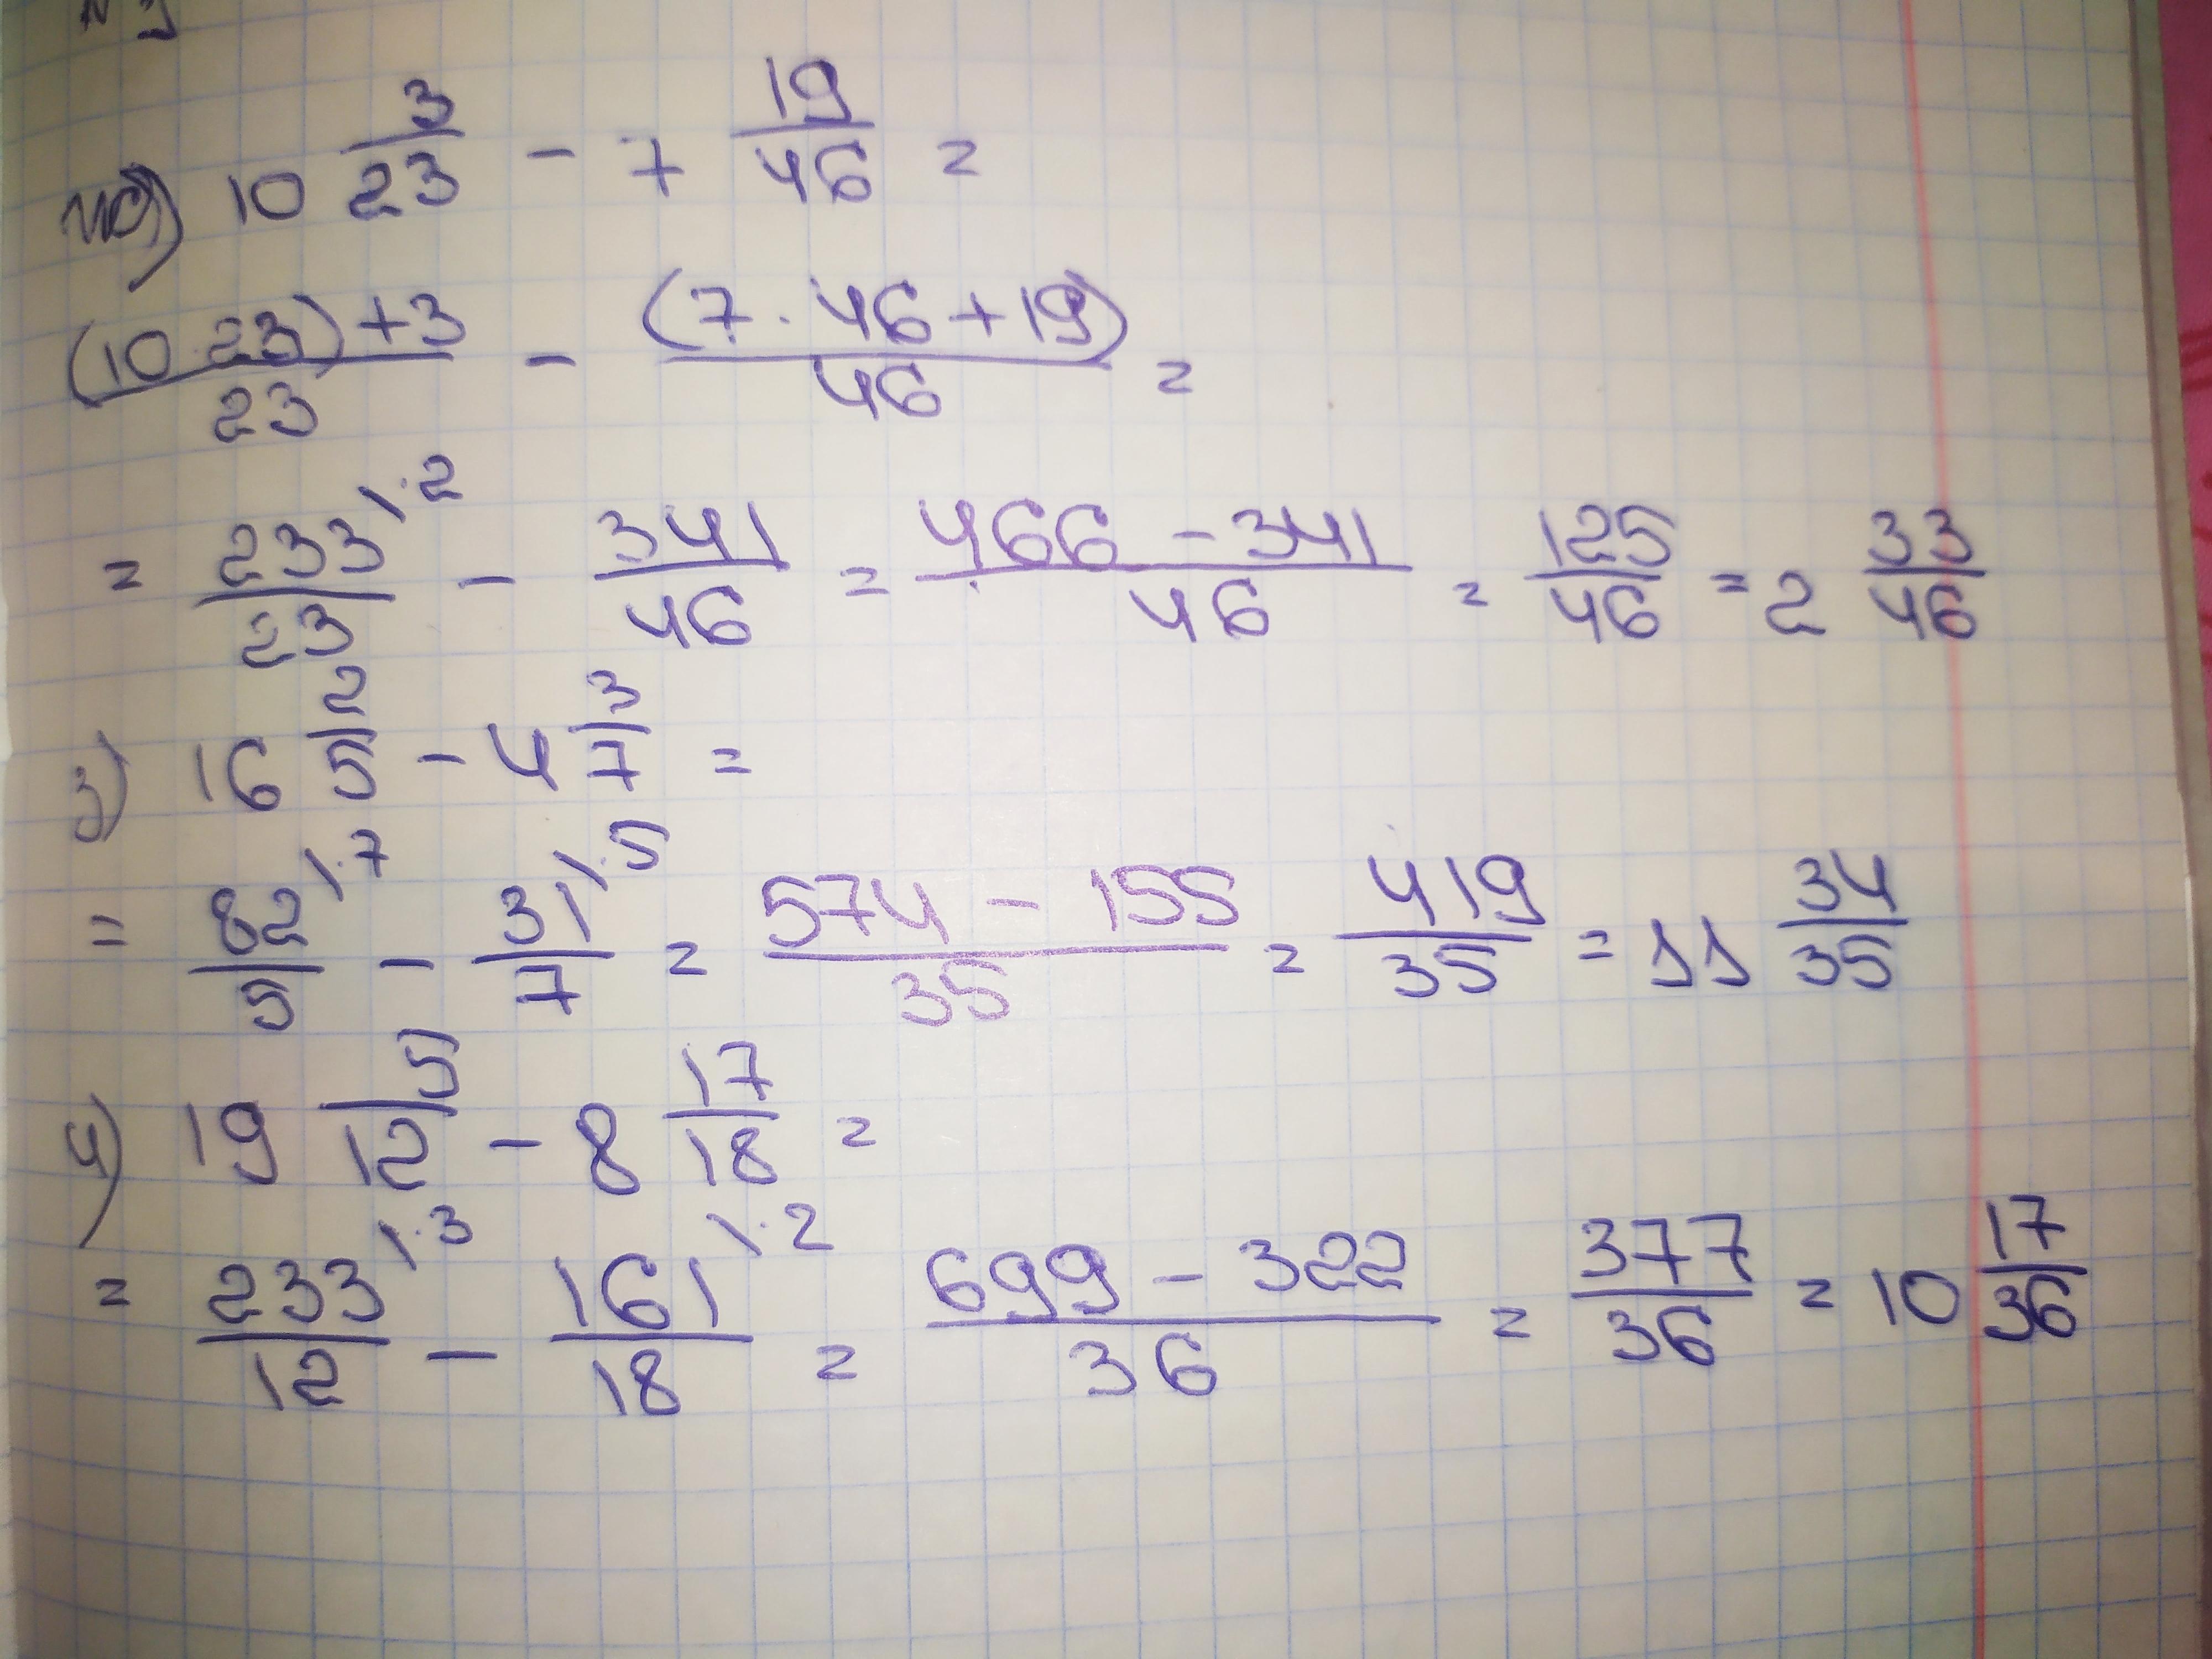 10 3/23 - 7 19/46 =
(10·23)+3/23 - (7·46+19)/46 =
= 233\·2/23 - 341/46 = 466-341/46 = 125/46 = 2 33/46
3) 16 2/5 - 4 3/7 =
= 82\·7/5 - 31\·5/7 = 574-155/35 = 419/35 = 11 34/35
4) 19 5/12 - 8 17/18 =
= 233\·3/12 - 161\·2/18 = 699-322/36 = 377/36 = 10 17/36